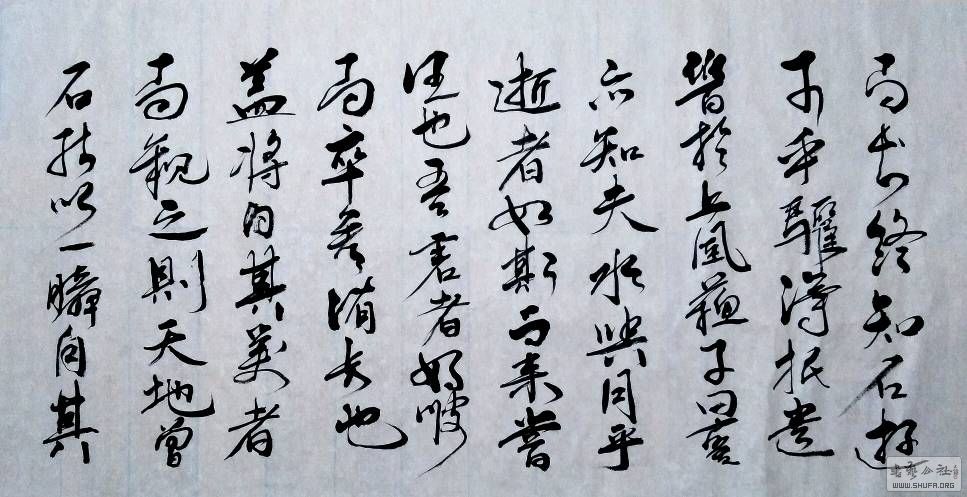 而长终知不
可乎驟得托遗
響於悲風蘇子曰客
亦知夫水與月乎
逝者如斯而未嘗
往也盈虚者如彼
而卒莫消长也
盖将自其变者
而觀之則天地曾
不能以一瞬自其
WWW.SHUFA.ORG